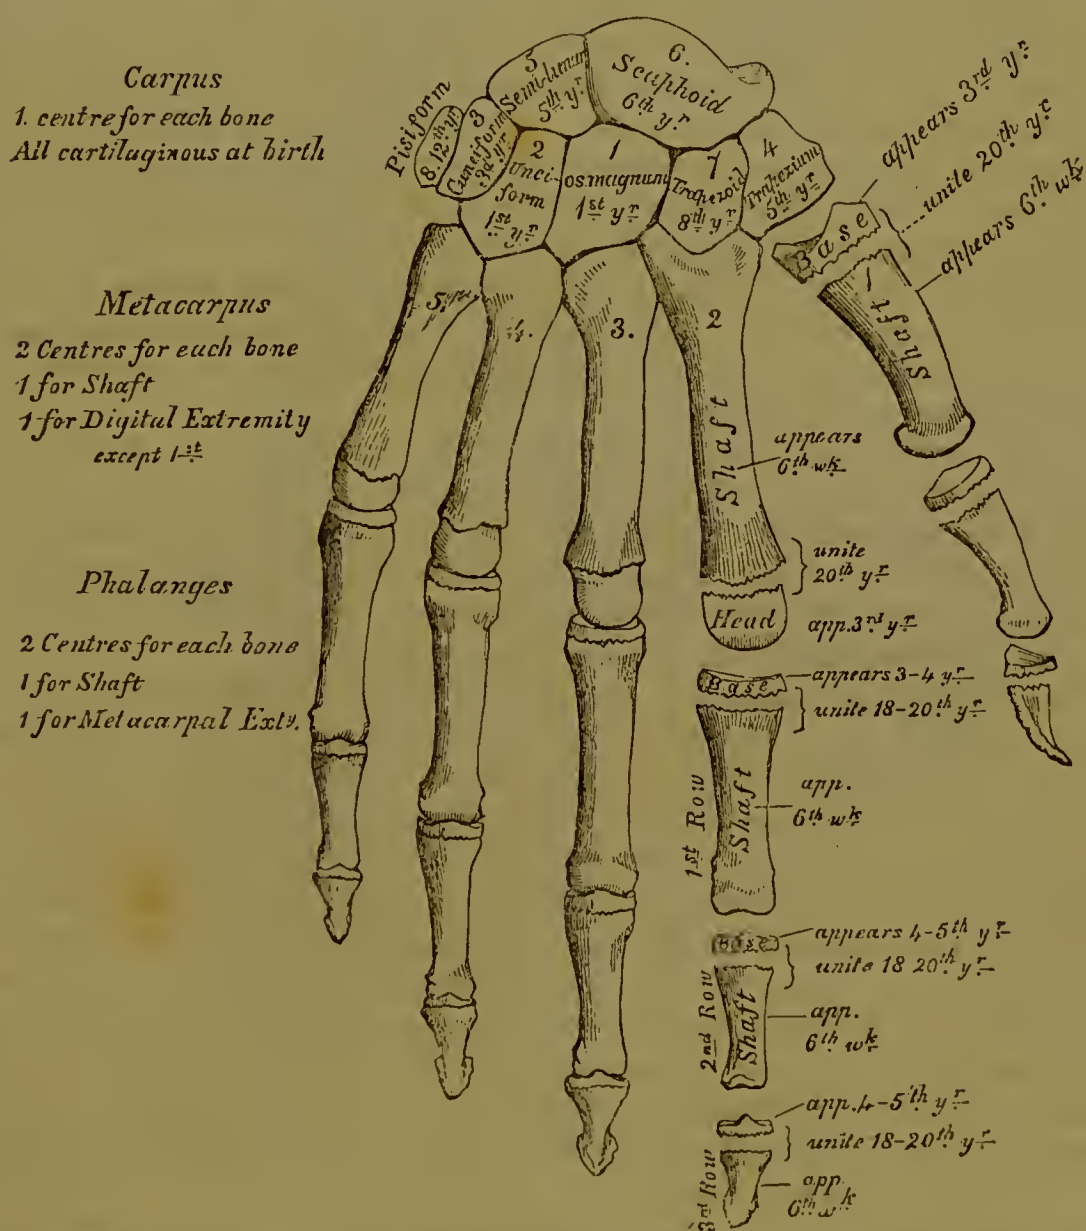 Carpus
1. centre for each bone
All cartilaginous at birth
Metacarpus
2 Centres for each bone
1 for Shaft
1 for Digital Extremity
except 1st
Phalanges
2 Centres for each bone
1 for Shaft
1 for Metacarpal Exty.
Pisiform
8. 12th yr
3
Cuneiform
3d yr
5
Semi-lunar
5th yr
6.
Scaphoid
6th yr
2
Unci-
form
1st yr
1
os.magnum
1st yr
7
Trapezoid
8th yr
4
Trapezium
5th yr
appears 3rd yr
unite 20th yr
appears 6th wk
Base
1
Shaft
5.
4.
3.
2
Shaft
appears
6th wk
unite
20th yr
Head
app. 3rd yr
Base
appears 3-4 yr
unite 18-20th yr
1st Row
Shaft
app.
6th wk
Base
appears 4-5th yr
unite 18 20th yr
2nd Row
Shaft
app.
6th wk
app. 4-5th yr
unite 18-20th yr
3rd Row
app
6th wk